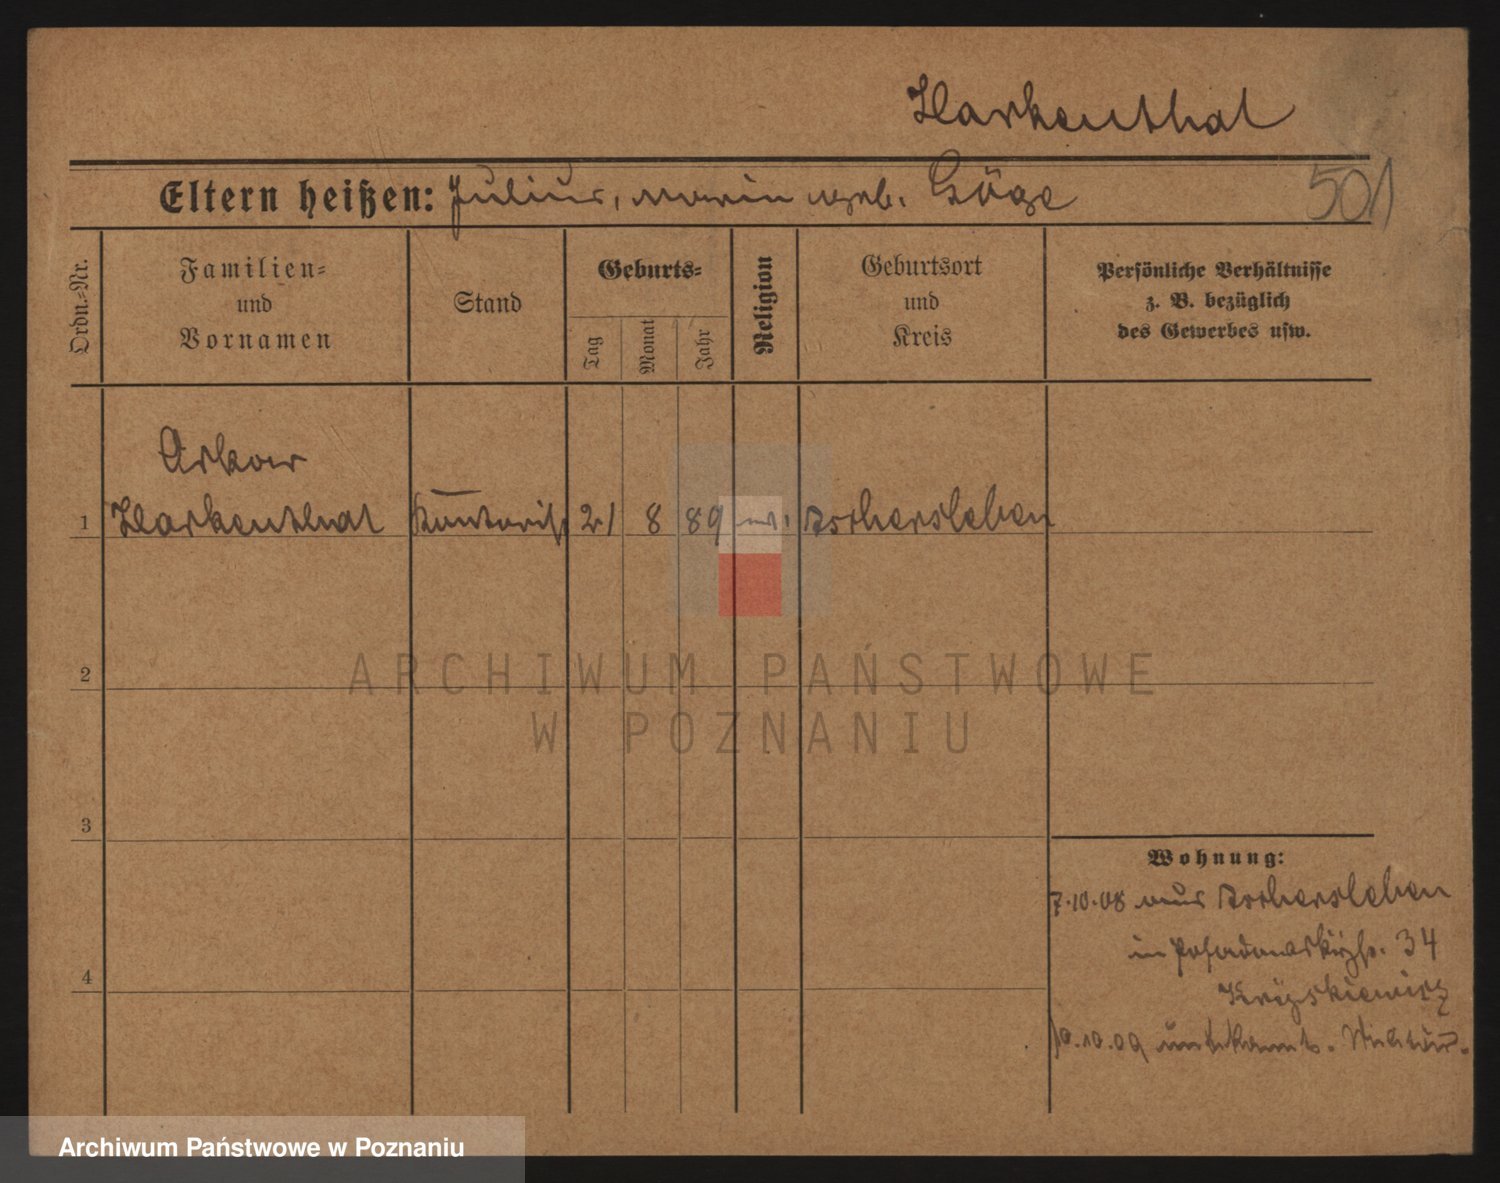 Harkenthal
Eltern heißen: Julius, Marie geb. Göge
501
Ordn.-Nr.
Familien-
und
Vornamen
Stand
Geburts-
Tag
Monat
Jahr
Religion
Geburtsort
und
Kreis
Persönliche Verhältnisse
z. B. bezüglich
des Gewerbes usw.
Oskar
1 Harkenthal Kontorist 21 8 89 ev. Aschersleben
2
ARCHIWUM PAŃSTWOWE
W POZNANIU
3
Wohnung:
7.10.08 aus Aschersleben
in Posadowskystr. 34
4
10.10.09 unbekannt. Militär.
Archiwum Państwowe w Poznaniu